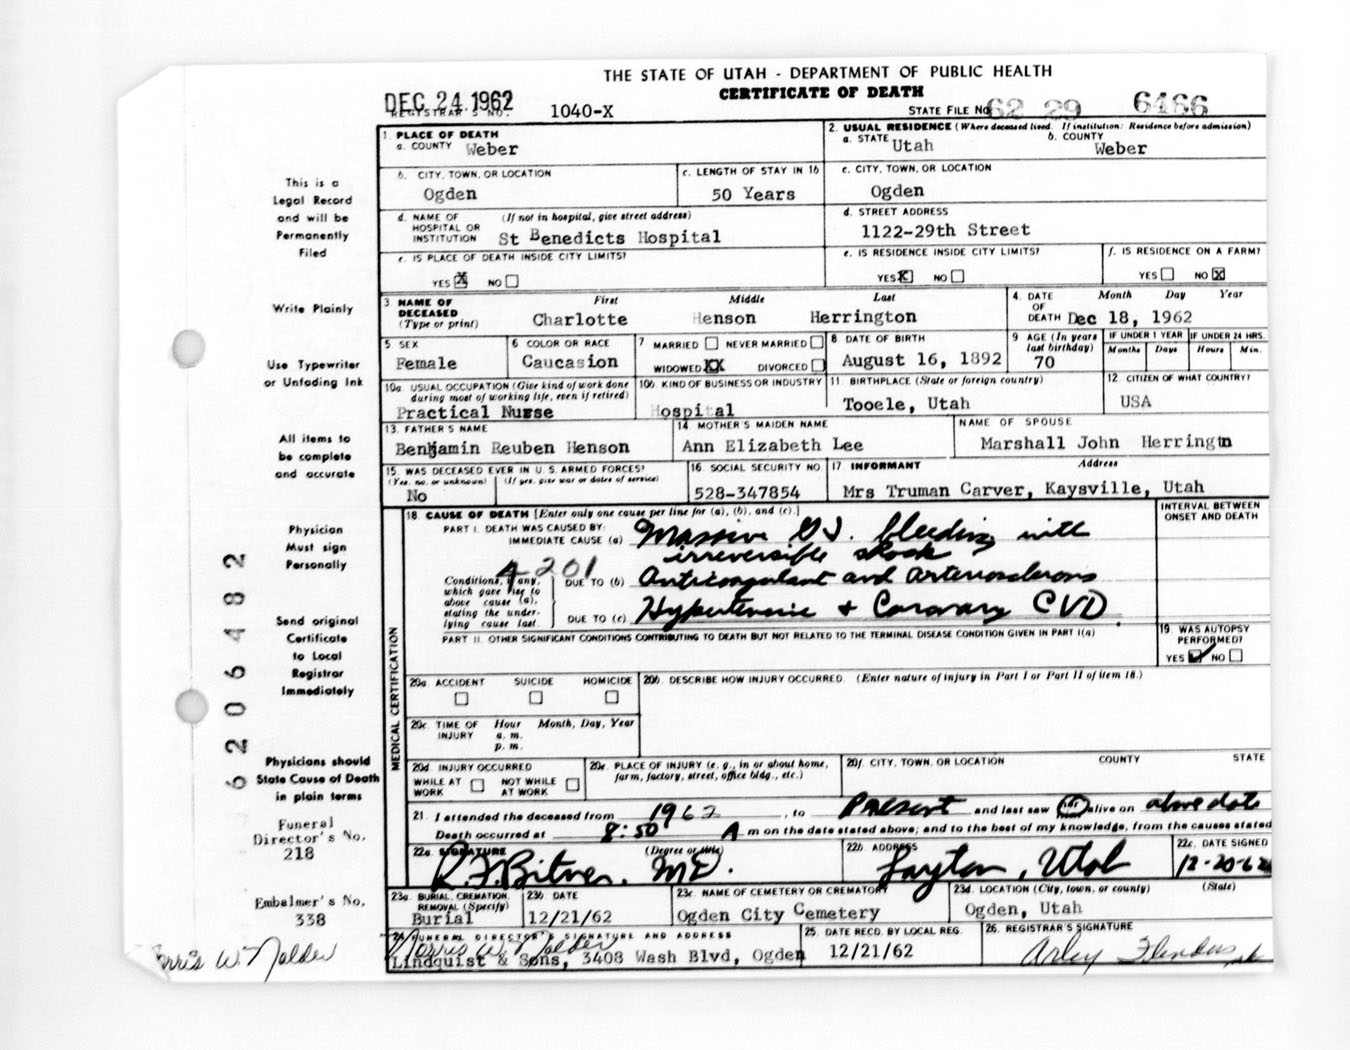 THE STATE OF UTAH - DEPARTMENT OF PUBLIC HEALTH
CERTIFICATE OF DEATH
DEC 24 1962
REGISTRAR'S NO. 1040-X
STATE FILE NO. 62 29 6466
1. PLACE OF DEATH
a. COUNTY Weber
2. USUAL RESIDENCE (Where deceased lived. If institution: Residence before admission)
a. STATE Utah b. COUNTY Weber
b. CITY, TOWN, OR LOCATION
Ogden
c. LENGTH OF STAY IN 1b
50 Years
c. CITY, TOWN, OR LOCATION
Ogden
d. NAME OF HOSPITAL OR INSTITUTION (If not in hospital, give street address)
St Benedicts Hospital
d. STREET ADDRESS
1122-29th Street
e. IS PLACE OF DEATH INSIDE CITY LIMITS?
YES X NO
e. IS RESIDENCE INSIDE CITY LIMITS?
YES X NO
f. IS RESIDENCE ON A FARM?
YES NO X
3 NAME OF DECEASED (Type or print) First Middle Last
Charlotte Henson Herrington
4. DATE OF DEATH Month Day Year
Dec 18, 1962
5. SEX
Female
6 COLOR OR RACE
Caucasion
7 MARRIED NEVER MARRIED
WIDOWED XX DIVORCED
8 DATE OF BIRTH
August 16, 1892
9 AGE (In years last birthday)
70
IF UNDER 1 YEAR IF UNDER 24 HRS.
Months Days Hours Min.
10a. USUAL OCCUPATION (Give kind of work done during most of working life, even if retired)
Practical Nurse
10b. KIND OF BUSINESS OR INDUSTRY
Hospital
11. BIRTHPLACE (State or foreign country)
Tooele, Utah
12. CITIZEN OF WHAT COUNTRY?
USA
13. FATHER'S NAME
Benjamin Reuben Henson
14 MOTHER'S MAIDEN NAME
Ann Elizabeth Lee
NAME OF SPOUSE
Marshall John Herringtn
15. WAS DECEASED EVER IN U.S. ARMED FORCES?
(Yes, no, or unknown) (If yes, give war or dates of service)
No
16 SOCIAL SECURITY NO.
528-347854
17. INFORMANT Address
Mrs Truman Carver, Kaysville, Utah
18. CAUSE OF DEATH [Enter only one cause per line for (a), (b), and (c).]
INTERVAL BETWEEN ONSET AND DEATH
PART I. DEATH WAS CAUSED BY:
IMMEDIATE CAUSE (a) Massive G I. bleeding with
irreversible shock
4201
Conditions, if any, which gave rise to above cause (a), stating the underlying cause last.
DUE TO (b) Anticoagulant and arteriosclerosis
DUE TO (c) Hypertensive + Coronary CVD.
PART II. OTHER SIGNIFICANT CONDITIONS CONTRIBUTING TO DEATH BUT NOT RELATED TO THE TERMINAL DISEASE CONDITION GIVEN IN PART I(a)
19. WAS AUTOPSY PERFORMED?
YES ✓ NO
MEDICAL CERTIFICATION
20a. ACCIDENT SUICIDE HOMICIDE
20b. DESCRIBE HOW INJURY OCCURRED. (Enter nature of injury in Part I or Part II of item 18.)
20c. TIME OF INJURY Hour Month, Day, Year
a. m.
p. m.
20d. INJURY OCCURRED
WHILE AT WORK NOT WHILE AT WORK
20e. PLACE OF INJURY (e. g., in or about home, farm, factory, street, office bldg., etc.)
20f. CITY, TOWN, OR LOCATION COUNTY STATE
21. I attended the deceased from 1962, to Present and last saw her alive on above date
Death occurred at 8:50 A m on the date stated above; and to the best of my knowledge, from the causes stated
22a. SIGNATURE (Degree or title)
R. F. Bitner, MD.
22b. ADDRESS
Layton, Utah
22c. DATE SIGNED
12-20-62
23a. BURIAL, CREMATION, REMOVAL (Specify)
Burial
23b. DATE
12/21/62
23c. NAME OF CEMETERY OR CREMATORY
Ogden City Cemetery
23d. LOCATION (City, town, or county) (State)
Ogden, Utah
24. FUNERAL DIRECTOR'S SIGNATURE AND ADDRESS
Norris W. Nalder
Lindquist & Sons, 3408 Wash Blvd, Ogden
25. DATE RECD. BY LOCAL REG.
12/21/62
26. REGISTRAR'S SIGNATURE
This is a
Legal Record
and will be
Permanently
Filed
Write Plainly
Use Typewriter
or Unfading Ink
All items to
be complete
and accurate
Physician
Must sign
Personally
Send original
Certificate
to Local
Registrar
Immediately
Physicians should
State Cause of Death
in plain terms
Funeral
Director's No.
218
Embalmer's No.
338
Norris W. Nalder
6206482